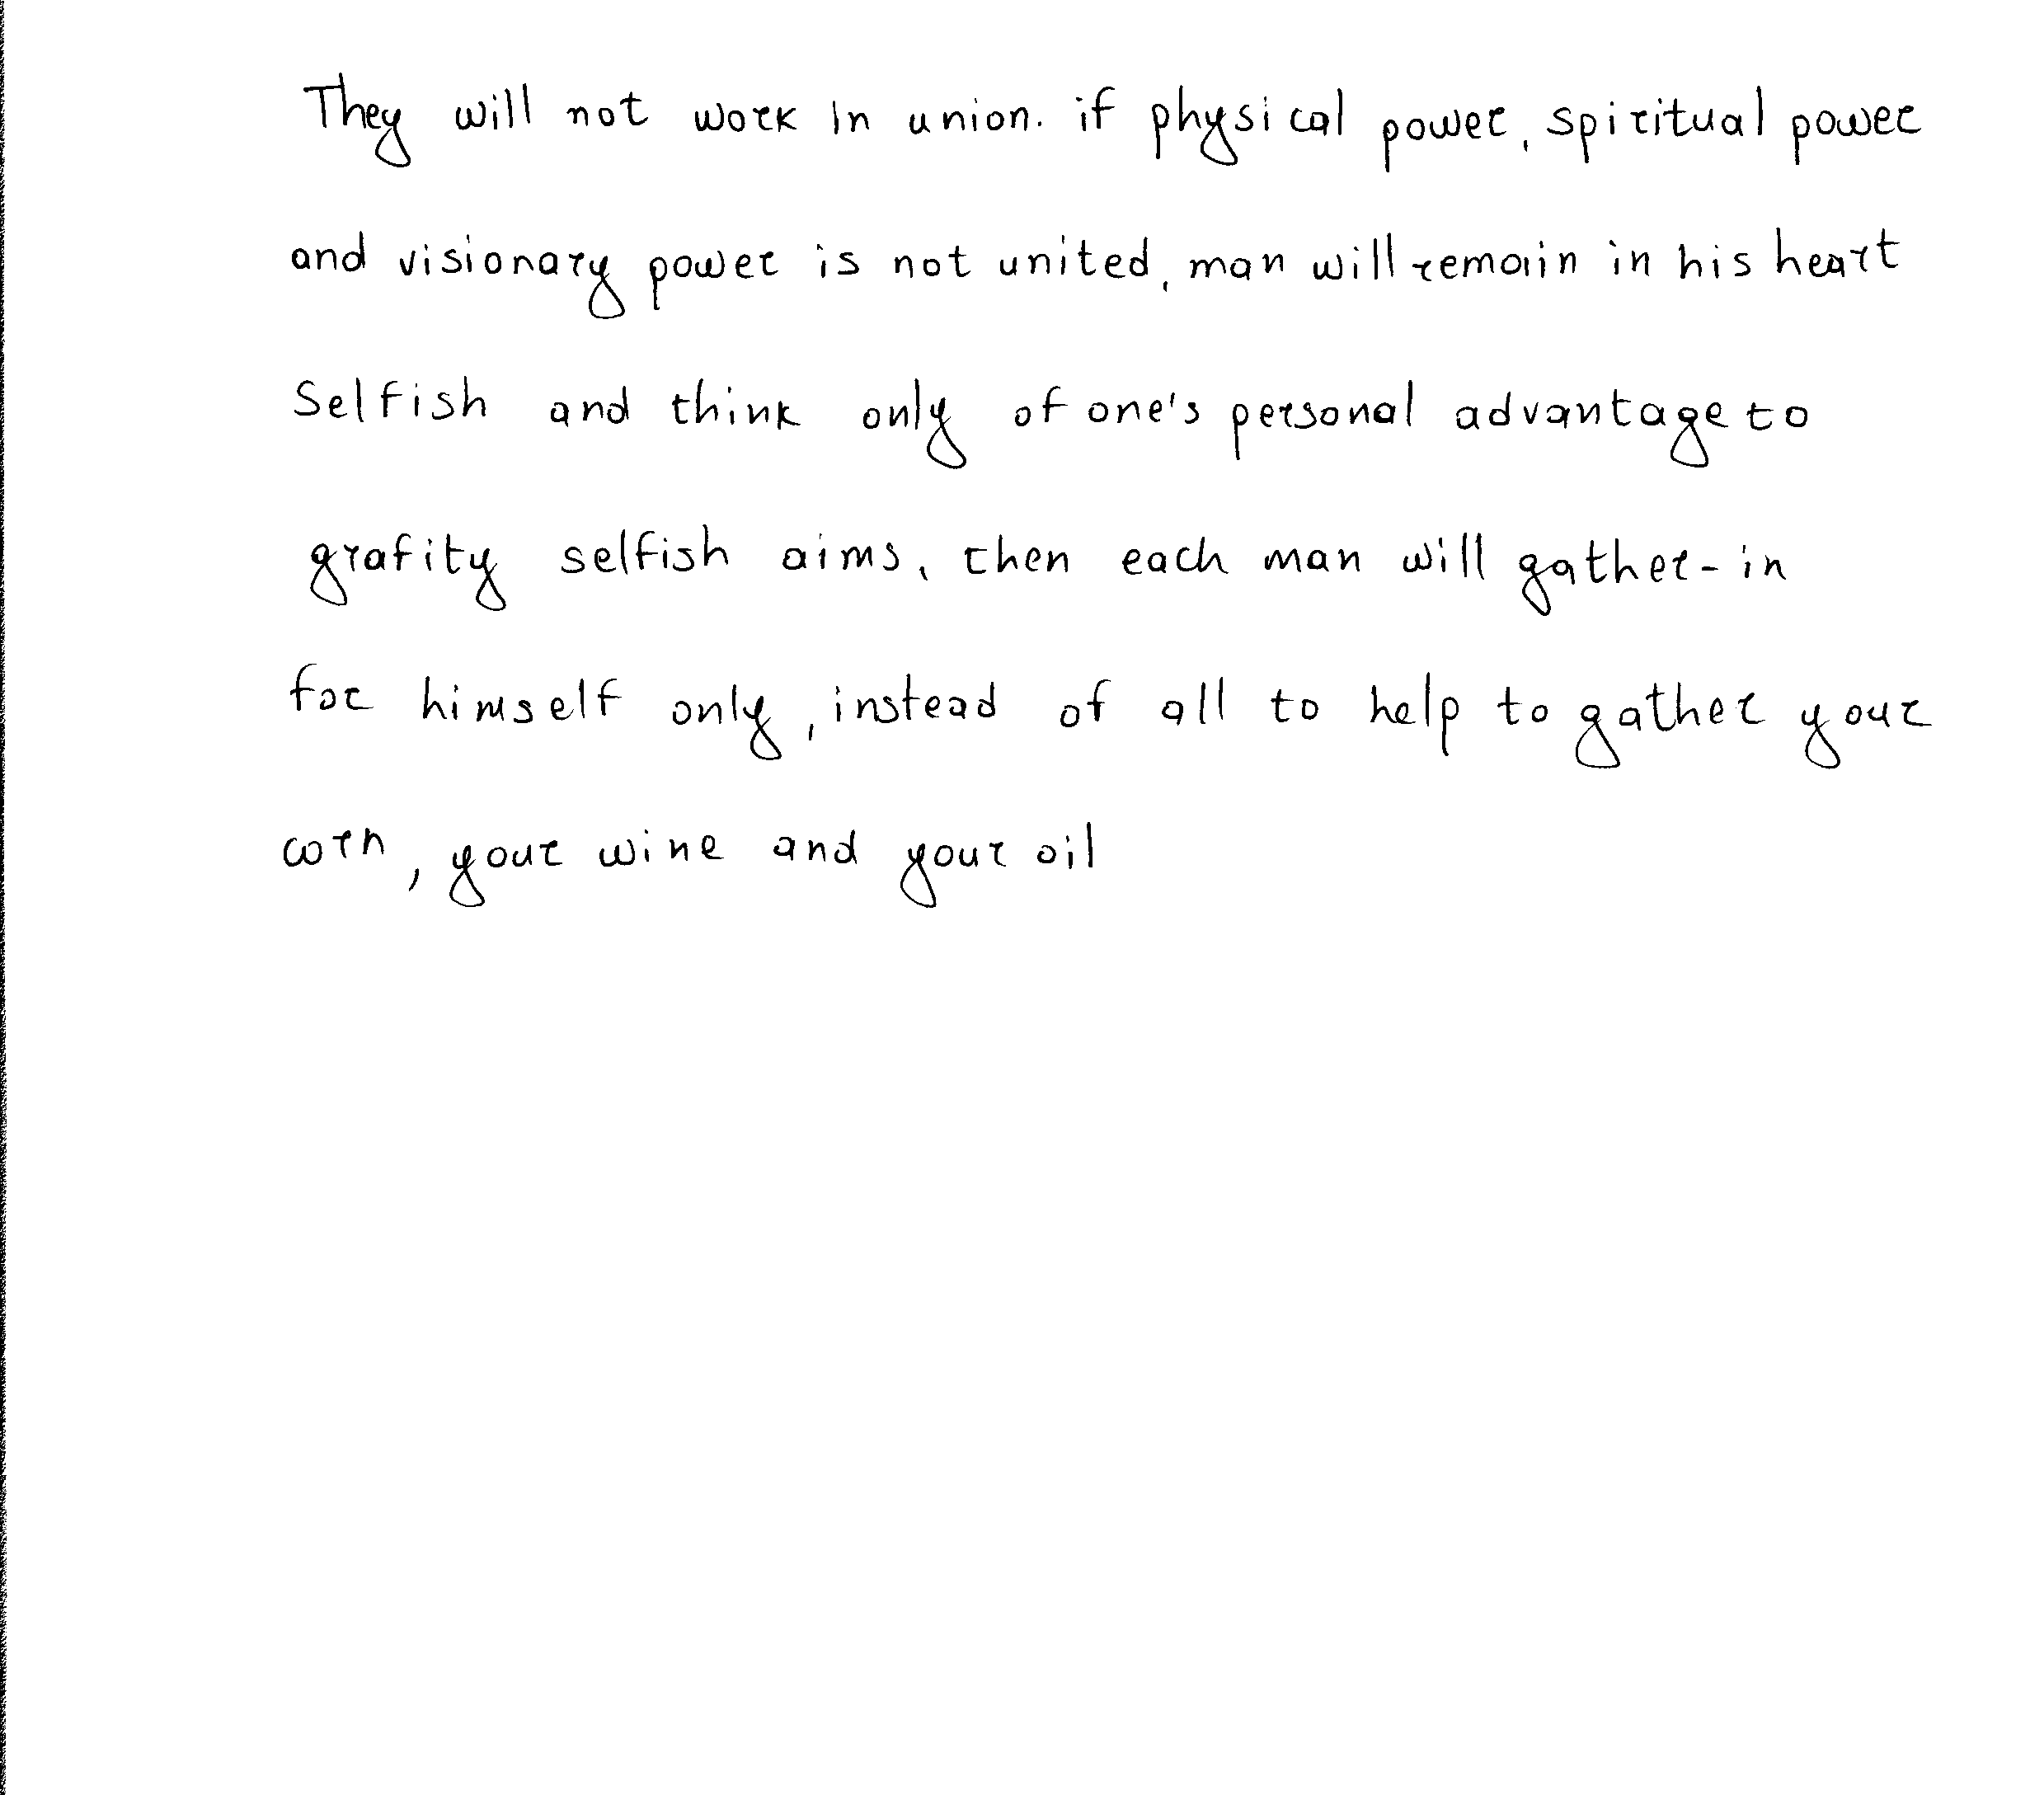 They will not work in union. if physical power, spiritual power
and visionary power is not united, man will remain in his heart
Selfish and think only of one's personal advantage to
grafity selfish aims, then each man will gather-in
for himself only, instead of all to help to gather your
corn, your wine and your oil